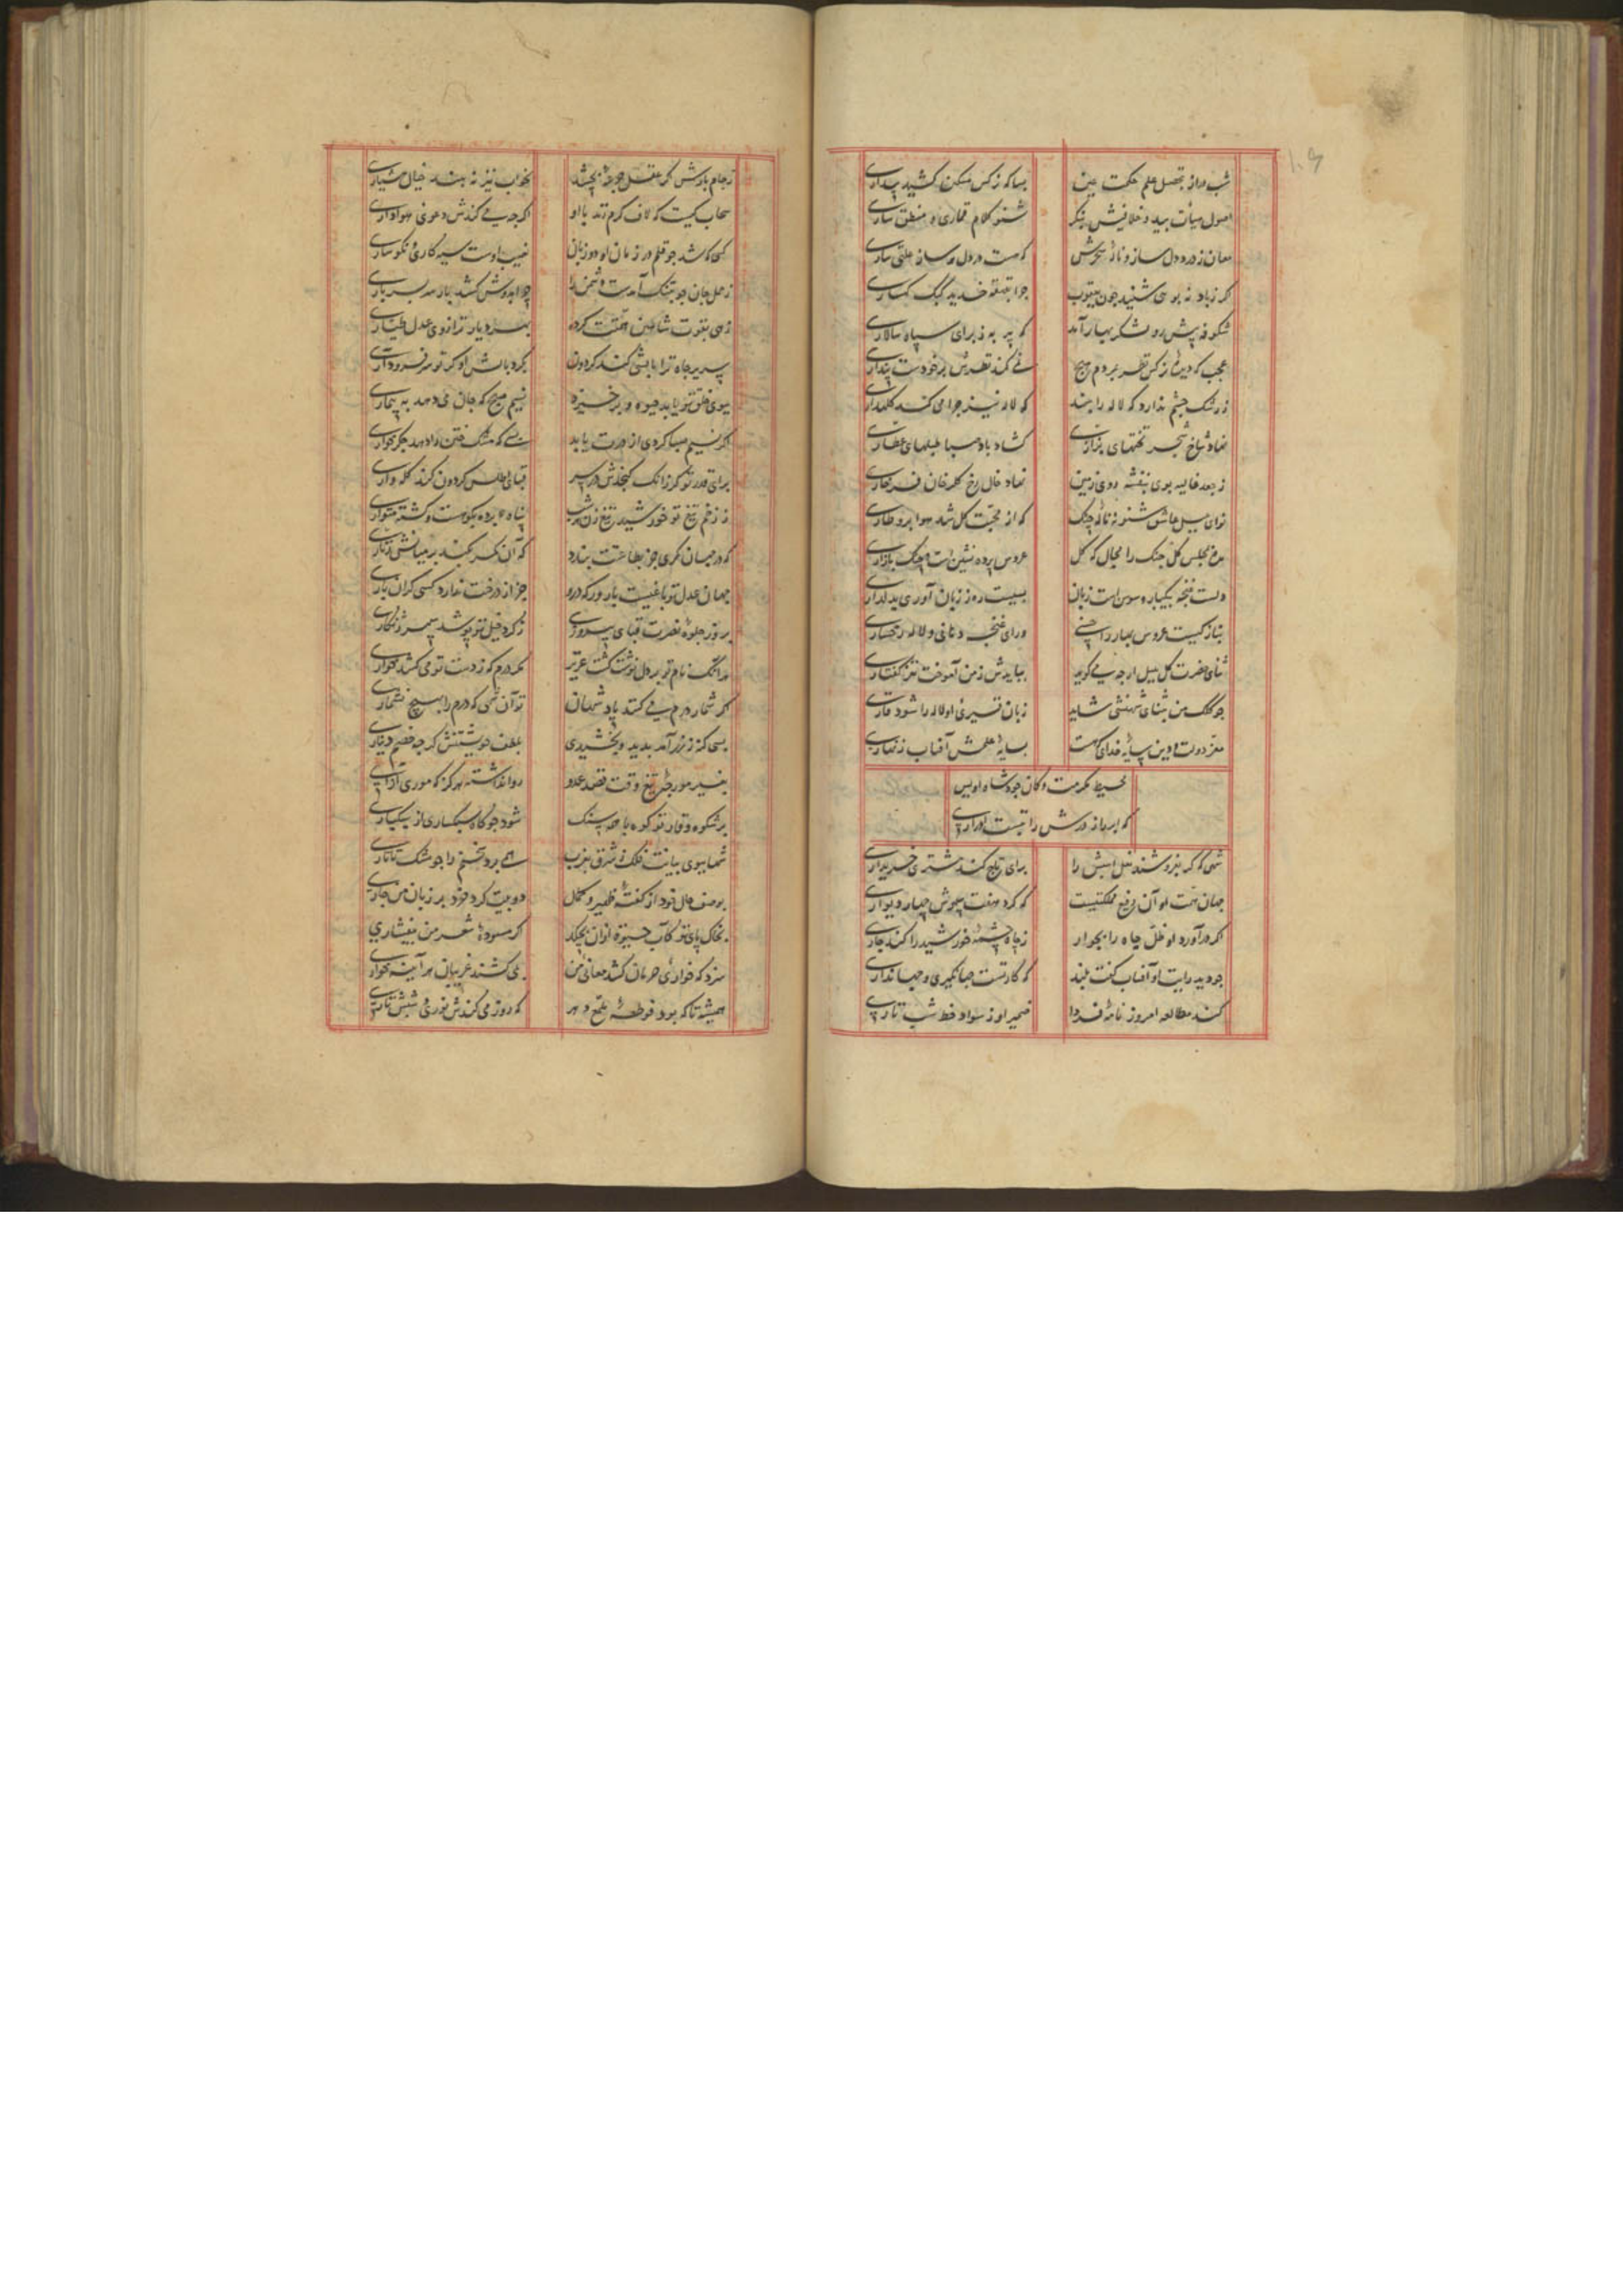 شب دراز تحصیل علم حکمت عین
بسا که نرکس مسکین کشید بیداری
اصول میأت بید و خلافش بنکر
شنو کلام قماری و منطق ساری
که هست در دل و ساز علتی ساری
اکر ز باد نه بوی شنید چون یعقوب
چرا بقهقه خندید کبک کهساری
شکوفه پیش رو لشکر بهار آمد
که پیر به بود برای سپاه سالاری
عجب که دیدهٔ نرکس نظر بمردم هیچ
نمی کند نظرش بر خودست پنداری
ز رشک چشم ندارد که لاله را بیند
که لاله نیز چرا می کند کلهداری
نهاد شاخ شجر تختهای بزازی
کشاد باد صبا طبلهای عطاری
ز جعد غالیه بوی بنفشه روی زمین
نهاد خال رخ کلرخان فرخاری
نوای بلبل عاشق شنو نه نالهٔ چنک
که از محبت کل شد هوا برو طاری
مرغ مجلس کل چنک را مجال که کل
عروس پرده نشین است و چنک بازاری
دلست غنچه بیکباره سوسن است زبان
بسیست روز زبان آوری بدلداری
بناز کیست عروس بهار را یعنی
ورای غنچه دهانی و لاله رخساری
ثنای حضرت کل بلبل ار چه می کوید
ببایدش ز من آموخت نغز کفتاری
چو کلک من بثنای شهنشهی شاید
زبان قمری او لاله را شود قاری
معز دولت و دین سایهٔ خدای که هست
بسایهٔ علمش آفتاب زنهاری
محیط مکرمت و کان جود شاه اویس
که ابر از درش راتبست ادراری
شهی که کر بفروشند نعل اسبش را
برای تاج کند مشتری خریداری
جهان همت او آن رفیع مملکتیست
که کرد هفت سپهرش چهار دیواری
اکر درآورد او ظل جاه را بجوار
ز چاه چشمهٔ خورشید را کند جاری
چو دید رایت او آفتاب کفت بلند
که کار تست جهانکیری و جهانداری
کند مطالعه امروز نامهٔ فردا
ضمیر او ز سواد خط شب تاری
ز جام بادش کر عقل جرعهٔ بچشد
بخواب نیز نه بیند خیال هشیاری
سحاب کیست که لاف کرم زند با او
اکر چه می کندش دعوی هواداری
کسی که شد چو قلم در زمان او دوزبان
نصیب اوست سیه کاری و نکوساری
ز حمل جان چو بتنک آمدست دشمن را
چرا بدوش کشد بار سر بسرباری
زهی بقوت شاهین همتت کرده
سریر جاه ترا بابشی کند کردون
بکرد بالش او کر تو سر فرود آری
ببوی خلق تو یابد حیوة و برخیزد
نسیم صبح که جان می دهد به بیماری
اکر نسیم صبا کردی از درت یابد
بسی که مشک ختن را دهد جکرخواری
برای قدر تو کر زانک کنجدش در سر
قبای اطلس کردون کند کله داری
ز زخم تیغ تو خورشید تیغ زن هر شب
پناه برده بکوهست و کشته متواری
که در جهان کمری جز بطاعتت بندد
که آن کمر نکند بر میانش زناری
جهان عدل تو باغیست بارور که درو
جز از درخت ندارد کسی کران باری
بروز جلوهٔ نصرت قبای پیروزی
ز کرد خیل تو پوشد سپهر زنکاری
بدانک نام تو بر دل نوشت کشت عزیز
مکر درم که ز دست تو می کشد خواری
اکر شمار درم می کنند پادشهان
تو آن شهی که درم را بهیچ نشماری
بسی که زر ز زر آمد پدید و بخشیدی
بلطف خویشتنش کر چه خصم دیناری
بغیر مورچهٔ تیغ وقت قصد عدو
روا نداشته هرکز که موری آزاری
بر شکوه وقار تو کوه با همه سنک
شود چو کاه سبکساری از سبکباری
شها ببوی بیانت فلک ز شرق بغرب
همی برد سخنم را چو مشک تاتاری
بوصف حال خود از کفتهٔ ظهیر و کمال
دو بیت کرد خرد بر زبان من جاری
بخاک پای تو کآب حیوة ازان بچکد
اکر مسودهٔ شعر من بیفشاری
سزد که خواری حرمان کشد معانی من
بلی کشند غریبان هر آینه خواری
همیشه تا که بود فوطهٔ ملمع دهر
که روز می کندش نوری و شبش تاری